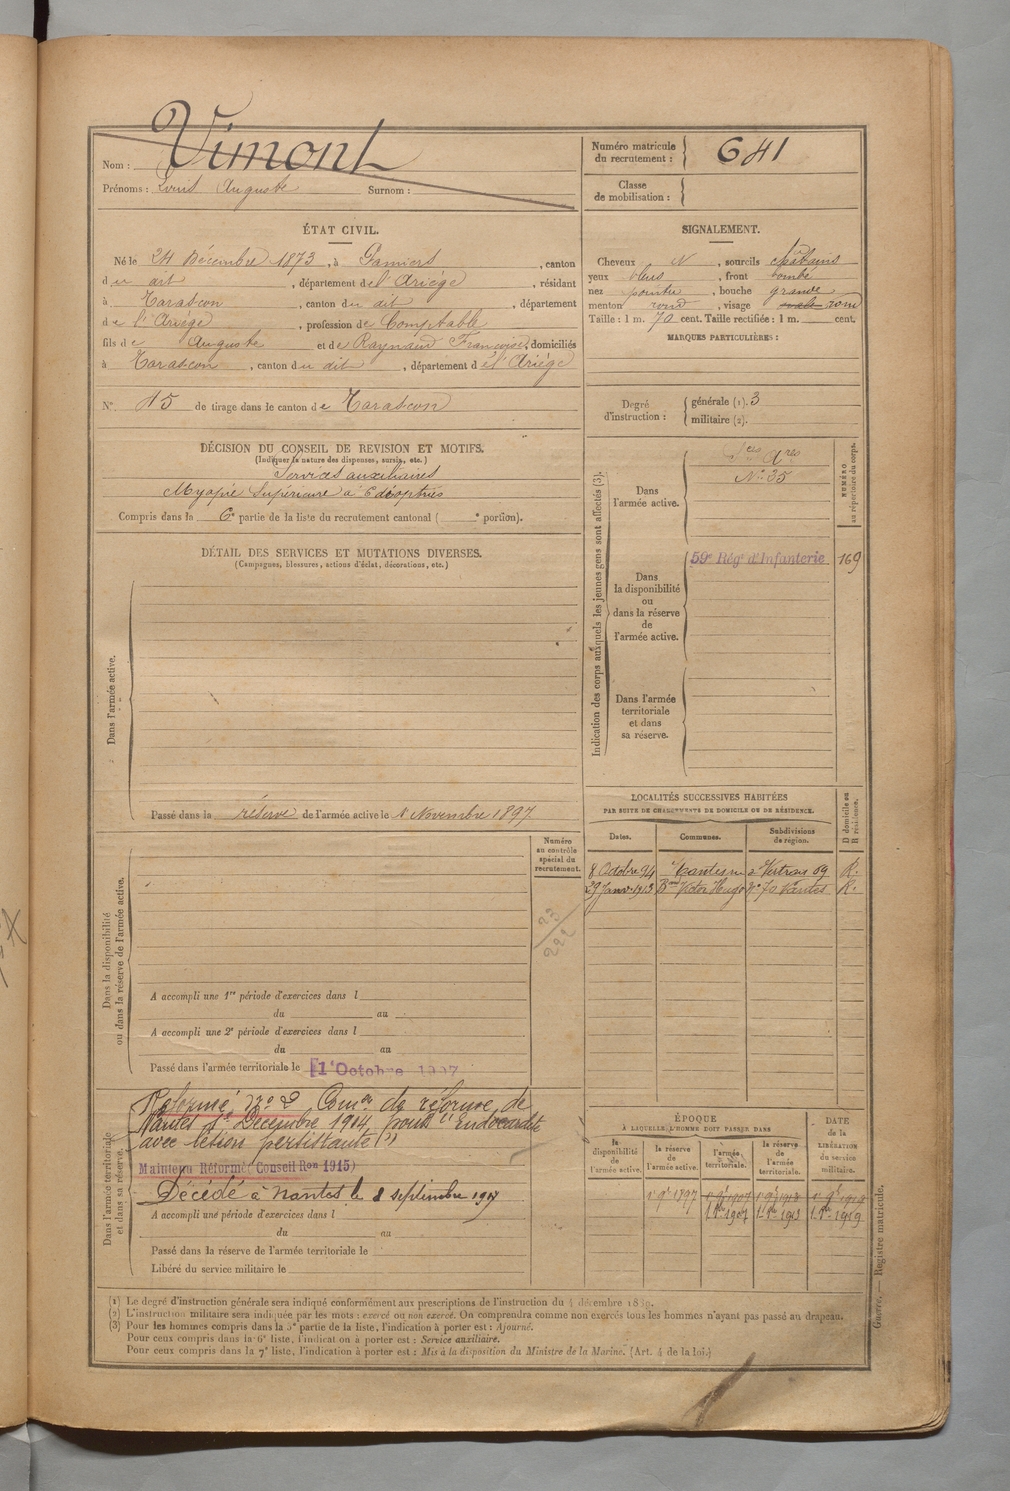 Nom : Vimont
Prénoms : Louis Auguste Surnom :
Numéro matricule du recrutement : 641
Classe de mobilisation :
ÉTAT CIVIL.
Né le 24 Décembre 1873, à Pamiers, canton
du dit, département de l'Ariège, résidant
à Tarascon, canton du dit, département
de l'Ariège, profession de Comptable
fils de Auguste et de Raynaud Françoise, domiciliés
à Tarascon, canton du dit, département de l'Ariège
N° 15 de tirage dans le canton de Tarascon
SIGNALEMENT.
Cheveux N, sourcils châtains
yeux bleus, front bombé
nez pointu, bouche grande
menton rond, visage ovale rond
Taille : 1 m. 70 cent. Taille rectifiée : 1 m. cent.
MARQUES PARTICULIÈRES :
Degré d'instruction : générale (1). 3
militaire (2).
DÉCISION DU CONSEIL DE REVISION ET MOTIFS.
(Indiquer la nature des dispenses, sursis, etc.)
Services auxiliaires
Myopie Supérieure à 6 dioptries
Compris dans la 6e partie de la liste du recrutement cantonal ( e portion).
DÉTAIL DES SERVICES ET MUTATIONS DIVERSES.
(Campagnes, blessures, actions d'éclat, décorations, etc.)
Dans l'armée active.
Passé dans la réserve de l'armée active le 1 Novembre 1897
Indication des corps auxquels les jeunes gens sont affectés (3).
NUMÉRO au répertoire du corps.
Dans l'armée active.
Sces Ares
N° 35
Dans la disponibilité ou dans la réserve de l'armée active.
59e Régt d'Infanterie 169
Dans l'armée territoriale et dans sa réserve.
LOCALITÉS SUCCESSIVES HABITÉES
PAR SUITE DE CHANGEMENTS DE DOMICILE OU DE RÉSIDENCE.
D domicile ou R résidence.
Dates. Communes. Subdivisions de région.
8 Octobre 94 Nantes rue de Vertais 69 R.
29 Janv. 1913 Bard Victor Hugo N° 70 Nantes R.
Numéro au contrôle spécial du recrutement.
23/222
Dans la disponibilité ou dans la réserve de l'armée active.
A accompli une 1re période d'exercices dans l
du au
A accompli une 2e période d'exercices dans l
du au
Passé dans l'armée territoriale le 1er Octobre 1907
Dans l'armée territoriale et dans sa réserve.
Réformé n° 2 Comon de réforme de
Nantes 1er Décembre 1914, pour "Endocardite
avec lésion persistante"
Maintenu Réformé (Conseil Ron 1915)
Décédé à Nantes le 8 septembre 1917
A accompli une période d'exercices dans l
du au
Passé dans la réserve de l'armée territoriale le
Libéré du service militaire le
ÉPOQUE
À LAQUELLE L'HOMME DOIT PASSER DANS
DATE de la LIBÉRATION du service militaire.
la disponibilité de l'armée active. la réserve de l'armée active. l'armée territoriale. la réserve de l'armée territoriale.
1 9bre 1897 1 9bre 1907 1 9bre 1913 1 9bre 1919
1 8bre 1907 1 8bre 1913 1 8bre 1919
(1) Le degré d'instruction générale sera indiqué conformément aux prescriptions de l'instruction du 4 décembre 1889.
(2) L'instruction militaire sera indiquée par les mots : exercé ou non exercé. On comprendra comme non exercés tous les hommes n'ayant pas passé au drapeau.
(3) Pour les hommes compris dans la 5e partie de la liste, l'indication à porter est : Ajourné.
Pour ceux compris dans la 6e liste, l'indication à porter est : Service auxiliaire.
Pour ceux compris dans la 7e liste, l'indication à porter est : Mis à la disposition du Ministre de la Marine. (Art. 4 de la loi.)
Guerre. — Registre matricule.